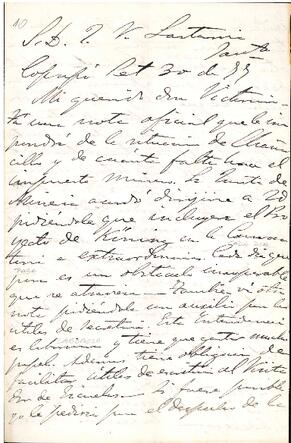 10
S. D. J. V. Lastarria
Copiapó Set 30 de
Mi querido don Victorin-
una nota oficial que le im-
pondrá de la situacion de Chañar-
cillo y de cuanta falta hace el
impuesto minero. La Junta de
Minería acordó dirigirse a Ud
pidiéndole que incluyera el Pro-
yecto de en la Convoca-
toria a extraordinarias. Cada dia que
pasa es un obstáculo insuperable
que se atraviesa. Tambien vi otra
nota pidiéndole un auxilio para los
útiles de secretaría. Esta Intendencia
es laboriosa y tiene que gastar mucho
papel. Ademas tiene obligacion de
facilitar útiles de escritorio al Visita-
dor de Escuelas. Si fuera posible
yo le pediria para el despacho de la